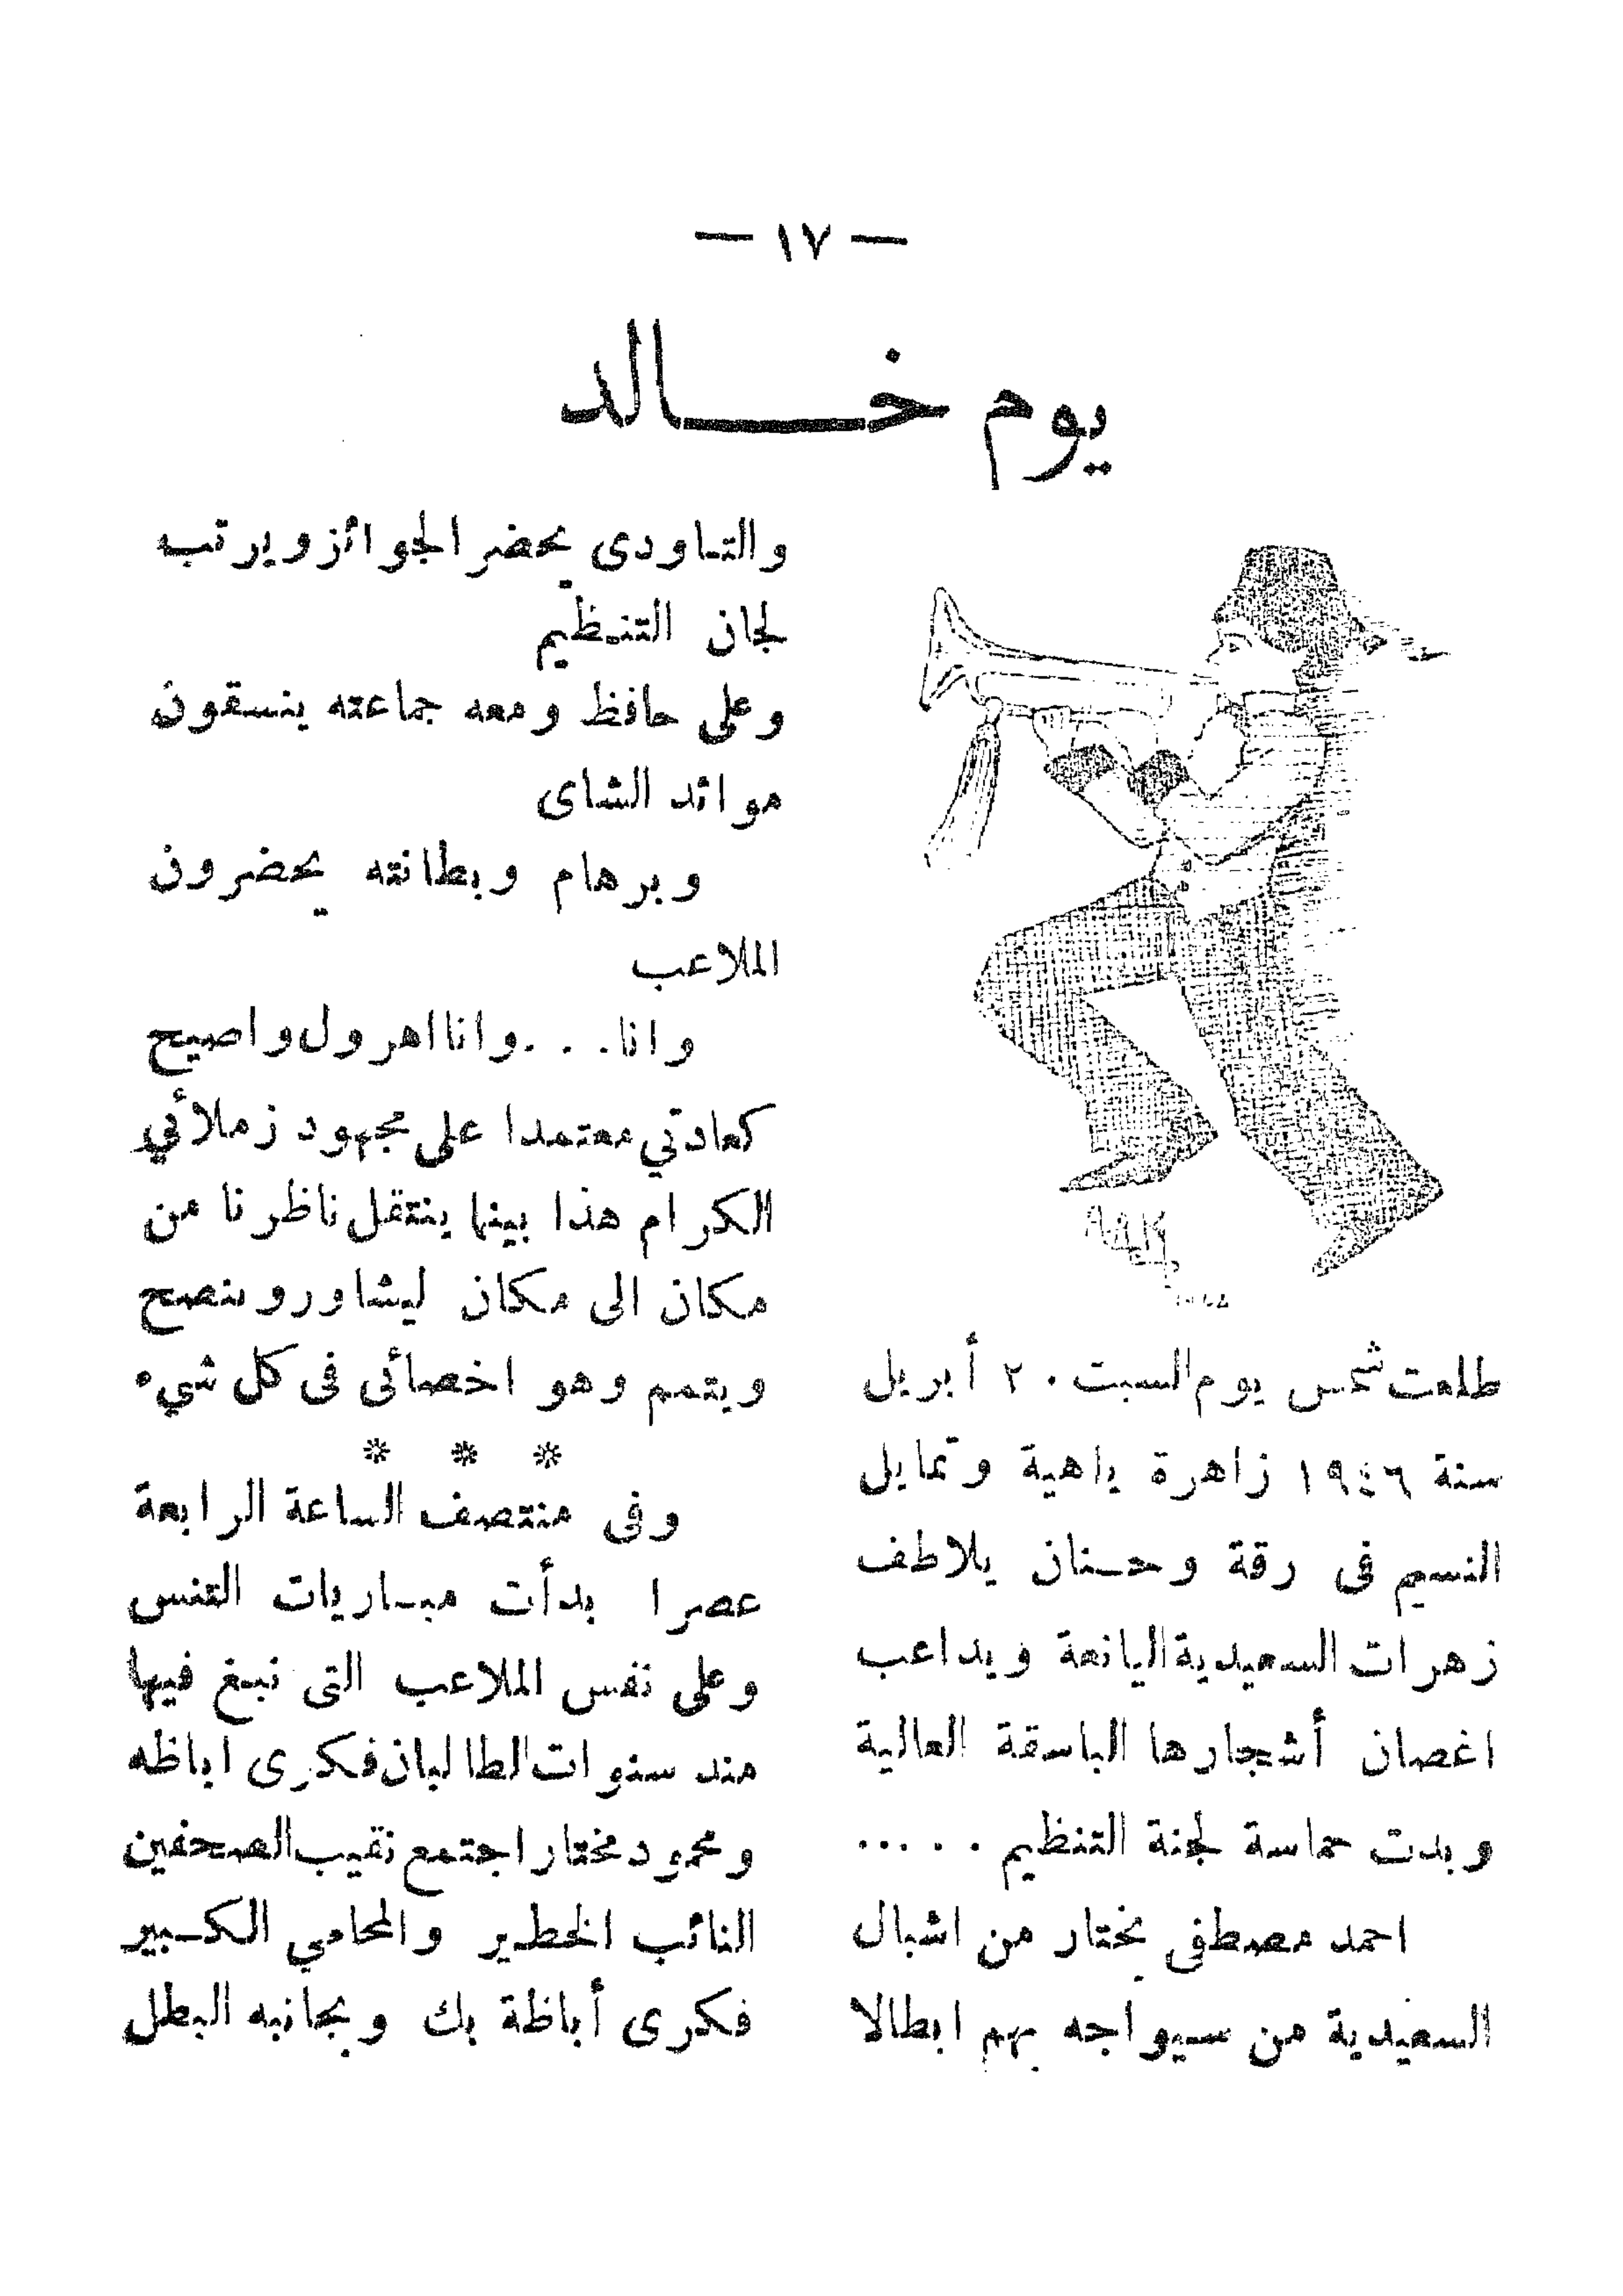 — ١٧ —
يوم خالد
طلعت شمس يوم السبت ٢٠ أبريل
سنة ١٩٤٦ زاهرة باهية وتمايل
النسيم فى رقة وحنان يلاطف
زهرات السعيدية اليانعة ويداعب
اغصان أشجارها الباسقة العالية
وبدت حماسة لجنة التنظيم . . . . .
احمد مصطفى يختار من اشبال
السعيدية من سيواجه بهم ابطالا
والتاودى يحضر الجوائز ويرتب
لجان التنظيم
وعلى حافظ ومعه جماعته ينسقون
موائد الشاى
وبرهام وبطانته يحضرون
الملاعب
وانا. . . .وانا اهرول واصيح
كعادتي معتمدا على مجهود زملائي
الكرام هذا بينما ينتقل ناظرنا من
مكان الى مكان ليشاور وينصح
ويتمم وهو اخصائى فى كل شيء
* * *
وفى منتصف الساعة الرابعة
عصرا بدأت مباريات التنس
وعلى نفس الملاعب التى نبغ فيها
منذ سنوات الطالبان فكرى اباظه
ومحمود مختار اجتمع نقيب الصحفين
النائب الخطير والمحامي الكبير
فكرى أباظة بك وبجانبه البطل